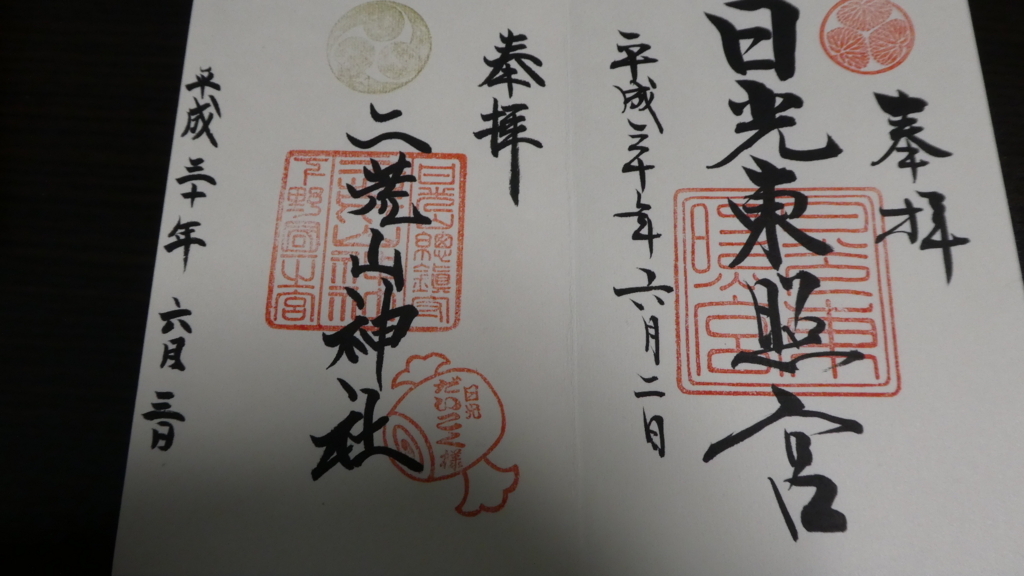 奉拝
日光東照宮
平成三十年六月二日
奉拝
二荒山神社
日光山總鎮守
下野國一宮
日光
だいこく様
平成三十年六月三日